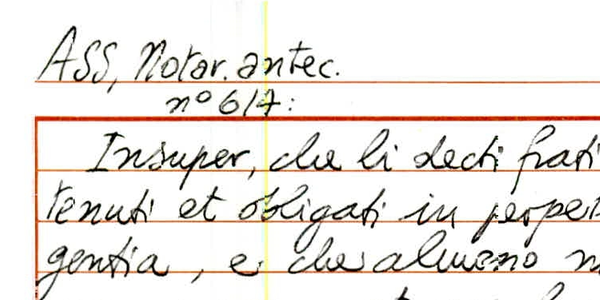 ASS, Notar. antec.
nº 617:
Insuper, che li decti frati
tenuti et obligati in
gentia, e che almeno